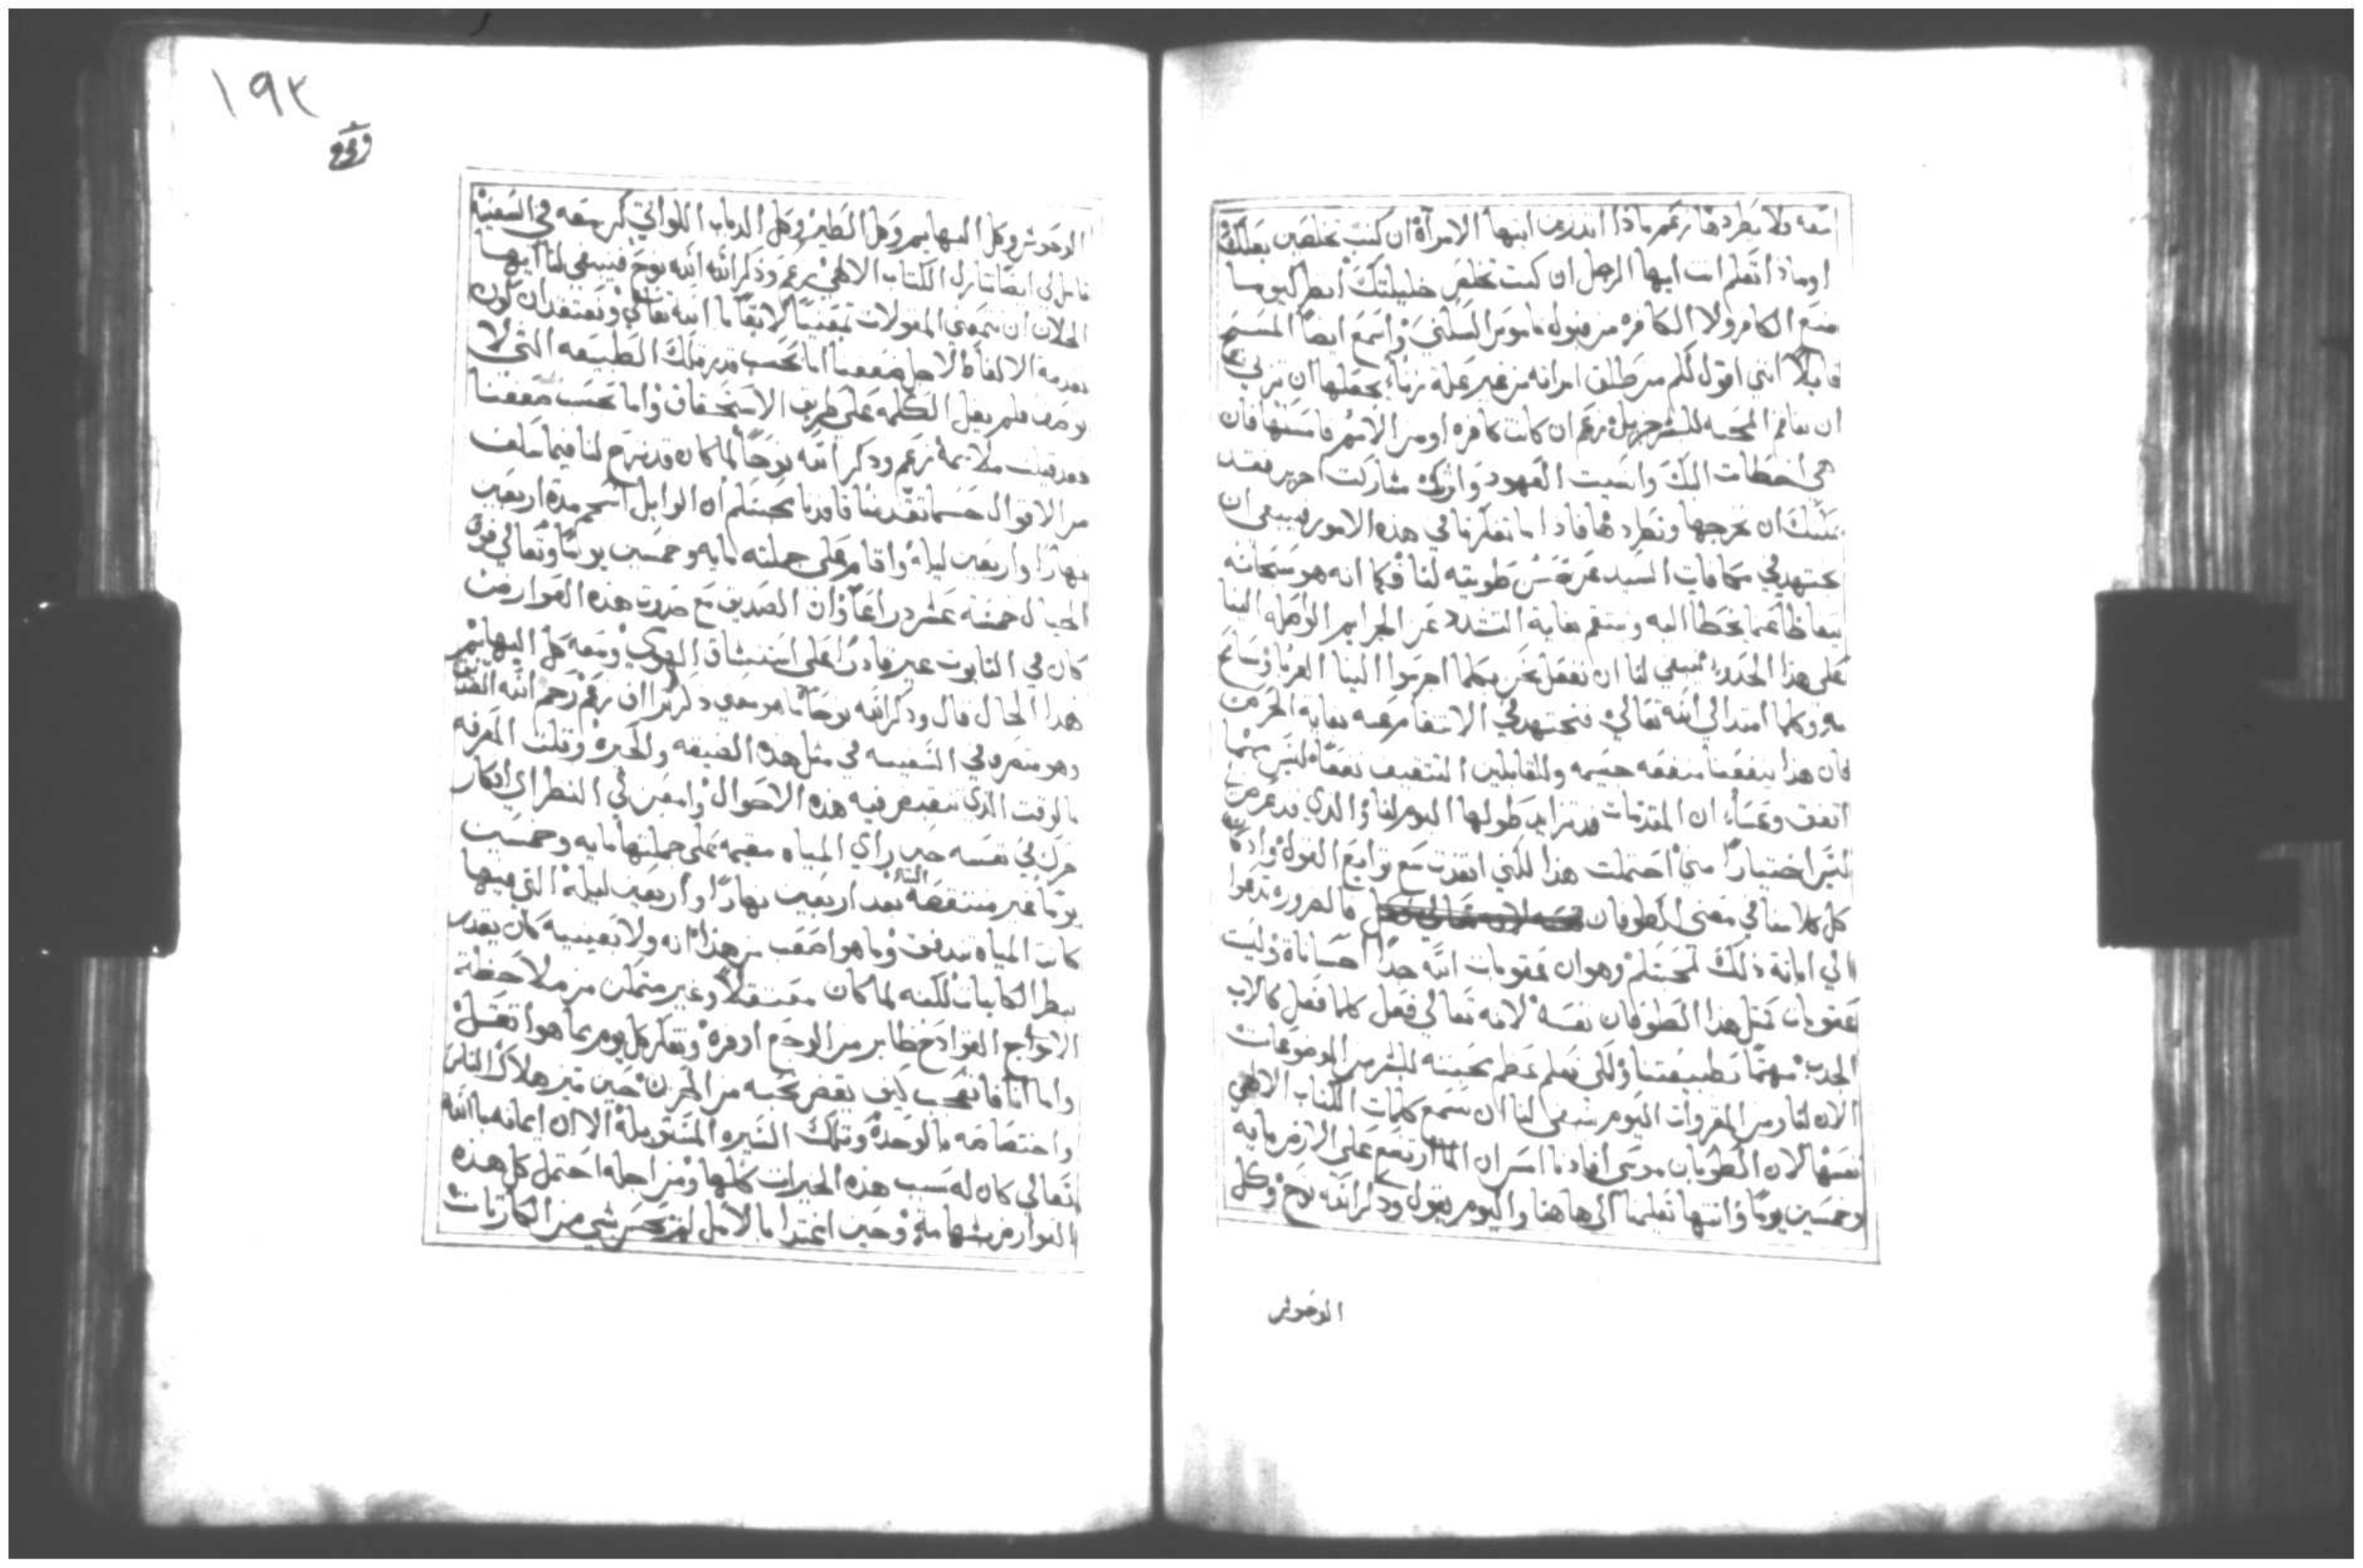 معه ولا يطردها زعم ماذا اتدرين ايتها الامرأة ان كنت تخلصين بعلك
او ماذا تعلم انت ايها الرجل ان كنت تخلص خليلتك أنظر كيف ما
منع الكافر ولا الكافره من قبوله ناموس السلني واسمع ايضاً المسيح
قايلاً انني اقول لكم من طلق امراته من غير علة زناء يجعلها ان تزني
ان تفاقم المحبه للبشر جزيل زعم ان كانت كافره او من الامم فامسكها فان
هي اخطات اليك وانسيت العهود واثرت مشاركت اخرين فقد
يمكنك ان تخرجها وتطردها فاذا ما تفكرنا في هذه الامور فينبغي ان
نجتهد في مكافات السيد عن حسن طويته لنا فكما انه هو سبحانه
يتغاظا عما يخطا اليه وينتقم بغاية التشدد عن الجرايم الواصله الينا
على هذا الحدو ينبغي لنا ان نفعل نحن مهما اجرموا الينا القربا نسامح
به وكلما امتد الي الله تعالي فنجتهد في الانتقام عنه بغاية الحرص
فان هذا ينفعنا منفعه جسيمه وللقابلين التثقيف نفعاً ليس بهما
اتفق وعساء ان المقدمات قد تزايد طولها اليوم لنا والذي قد عرض
ليس اختياراً مني احتملت هذا لكني انقدت مع توابع القول واذ كان
كل كلامنا في معنى الطوفان فالضروره تدعوا
الي امانة ذلك لمحبتكم وهو ان عقوبات الله جداً احساناة وليست
عقوبات كمثل هذا الطوفان نفسه لانه تعالي فعل كلما فعل كالاب
الحدب مهتماً بطبيعتنا ولكي نعلم عظم محبته للبشر من الموضوعات
الان لنا ومن المقروات اليوم ينبغي لنا ان نسمع كلمات الكتاب الالاهي
نفسها لان الطوبان موسى افادنا امس ان الما ارتفع على الارض مايه
وخمسين يوماً وانتها تعليمنا الى هاهنا واليوم يقول وذكر الله نوح وكل
الوحوش
١٩٢
الوحوش وكل البهايم وكل الطير وكل الدباب اللواتي كن معه في السفينة
تامل لي ايضاً تنازل الكتاب الالاهي زعم وذكر الله نوح فينبغي لنا ايها
الخلان ان نتمعن المقولات تمعنياً لايقاً بالله تعالي ونعتقد ان تكون
فدمة الالفاظ لاجل ضعفنا اما بحسب قدر تلك الطبيعه التي لا
توصف فلم يقل الكلمه على طريق الاستحقاق واما بحسب ضعفنا
فقد قيلت ملايمة زعم وذكر الله نوحاً لما كان قد شرح لنا فيما سلف
من الاقوال حسبما تقدمنا فافدنا محبتكم ان الوابل انسجم مدة اربعين
نهاراً واربعين ليلة واقام على جملته مايه وخمسين يوماً وتعالي فوق
الجبال خمسة عشر دراعاً وان الصديق مع حدوت هذه العوارض
كان في التابوت غير قادراً على استنشاق الهوي ومعه كل البهايم
هذا الحال قال وذكر الله نوحاً ما هو معني ذكر تراف زعم رحم الله الصديق
وهو متصرف في السفينه في مثل هذه الضيقه والحيره وقلت المعرفه
بالوقت الذي ينقضي فيه هذه الاحوال وامعن لي النظر الي افكار
حركن في نفسه حين راي المياه مقيمه على جملتها مايه وخمسين
يوماً غير منتقصة الثاء بعد اربعين نهاراً واربعين ليلة التي فيها
كانت المياه تندفق وما هو اصعب من هذا انه ولا بعينيه كان يقدر
ينظر الكاينات لكنه لما كان معتقلاً وغير متمكن من ملاحظة
الاوجاع الفوادح ظاهر من الوجع اوفره وتفكر كل يوم بما هو اثقل
واما انا فاتعجب كيف لم يقض نحبه من الحزن حين تميز هلاك الناس
واختصاصه بالوحدة وتلك السيره المستوبلة الا ان ايمانه بالله
تعالي كان له سبب هذه الخيرات كلها ومن اجله احتمل كل هذه
النوازل بشهامة وحين اغتدا بالامل لم يحس بشي من الكارثات